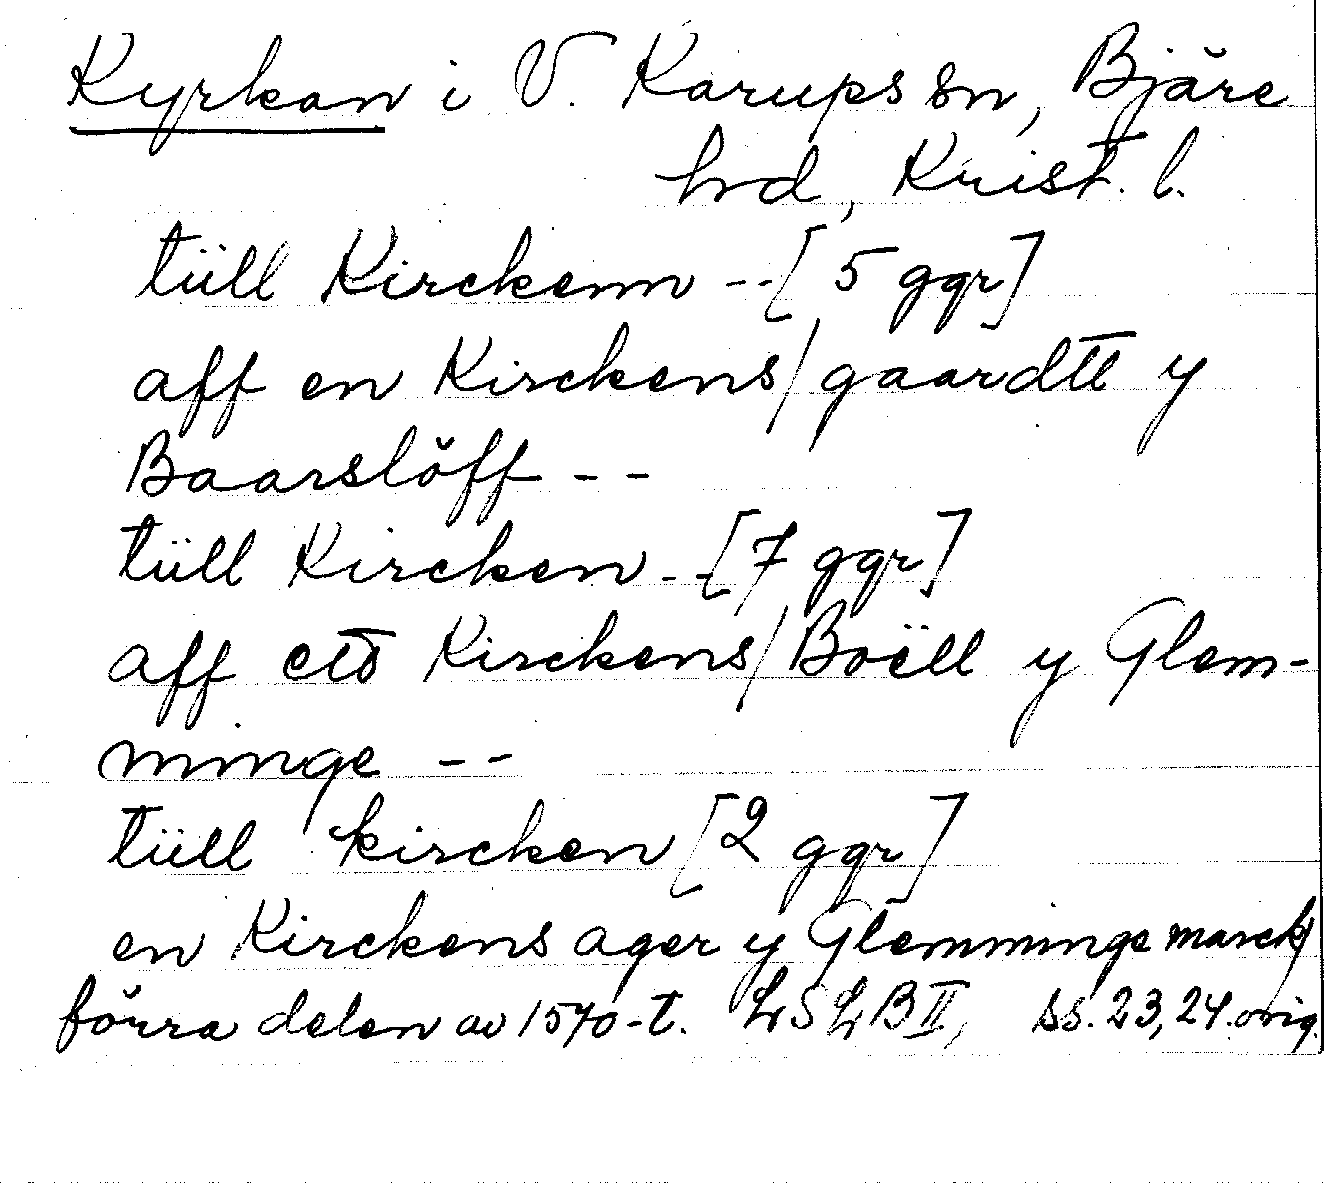 Kyrkan i V. Karups sn, Bjäre
hd, Krist. l.
tüll Kirckenn -- [5 ggr]
aff en Kirckens/gaardtt y
Baarslöff --
tüll Kircken -- [7 ggr]
aff ett Kirckens/Boëll y Glem-
minge --
tüll kircken [2 ggr]
en Kirckens ager y Glemminge marck/
förra delen av 1570-t. LSLB II, ss. 23, 24. orig.